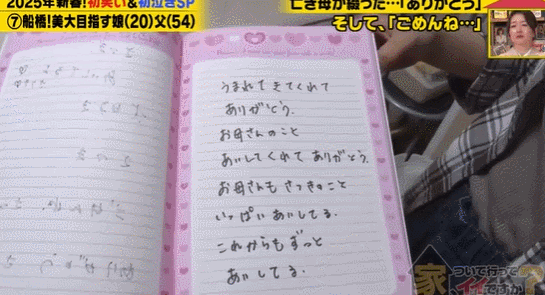 2025年新春!初笑い&初泣きSP
⑦船橋!美大目指す娘(20)父(54)
亡き母が綴った…「ありがとう」
そして、「ごめんね…」
うまれてきてくれて
ありがとう。
お母さんのこと
あいしてくれてありがとう。
お母さんもさつきのこと
いっぱいあいしてる。
これからもずっと
あいしてる。
家、ついて行ってイイですか?